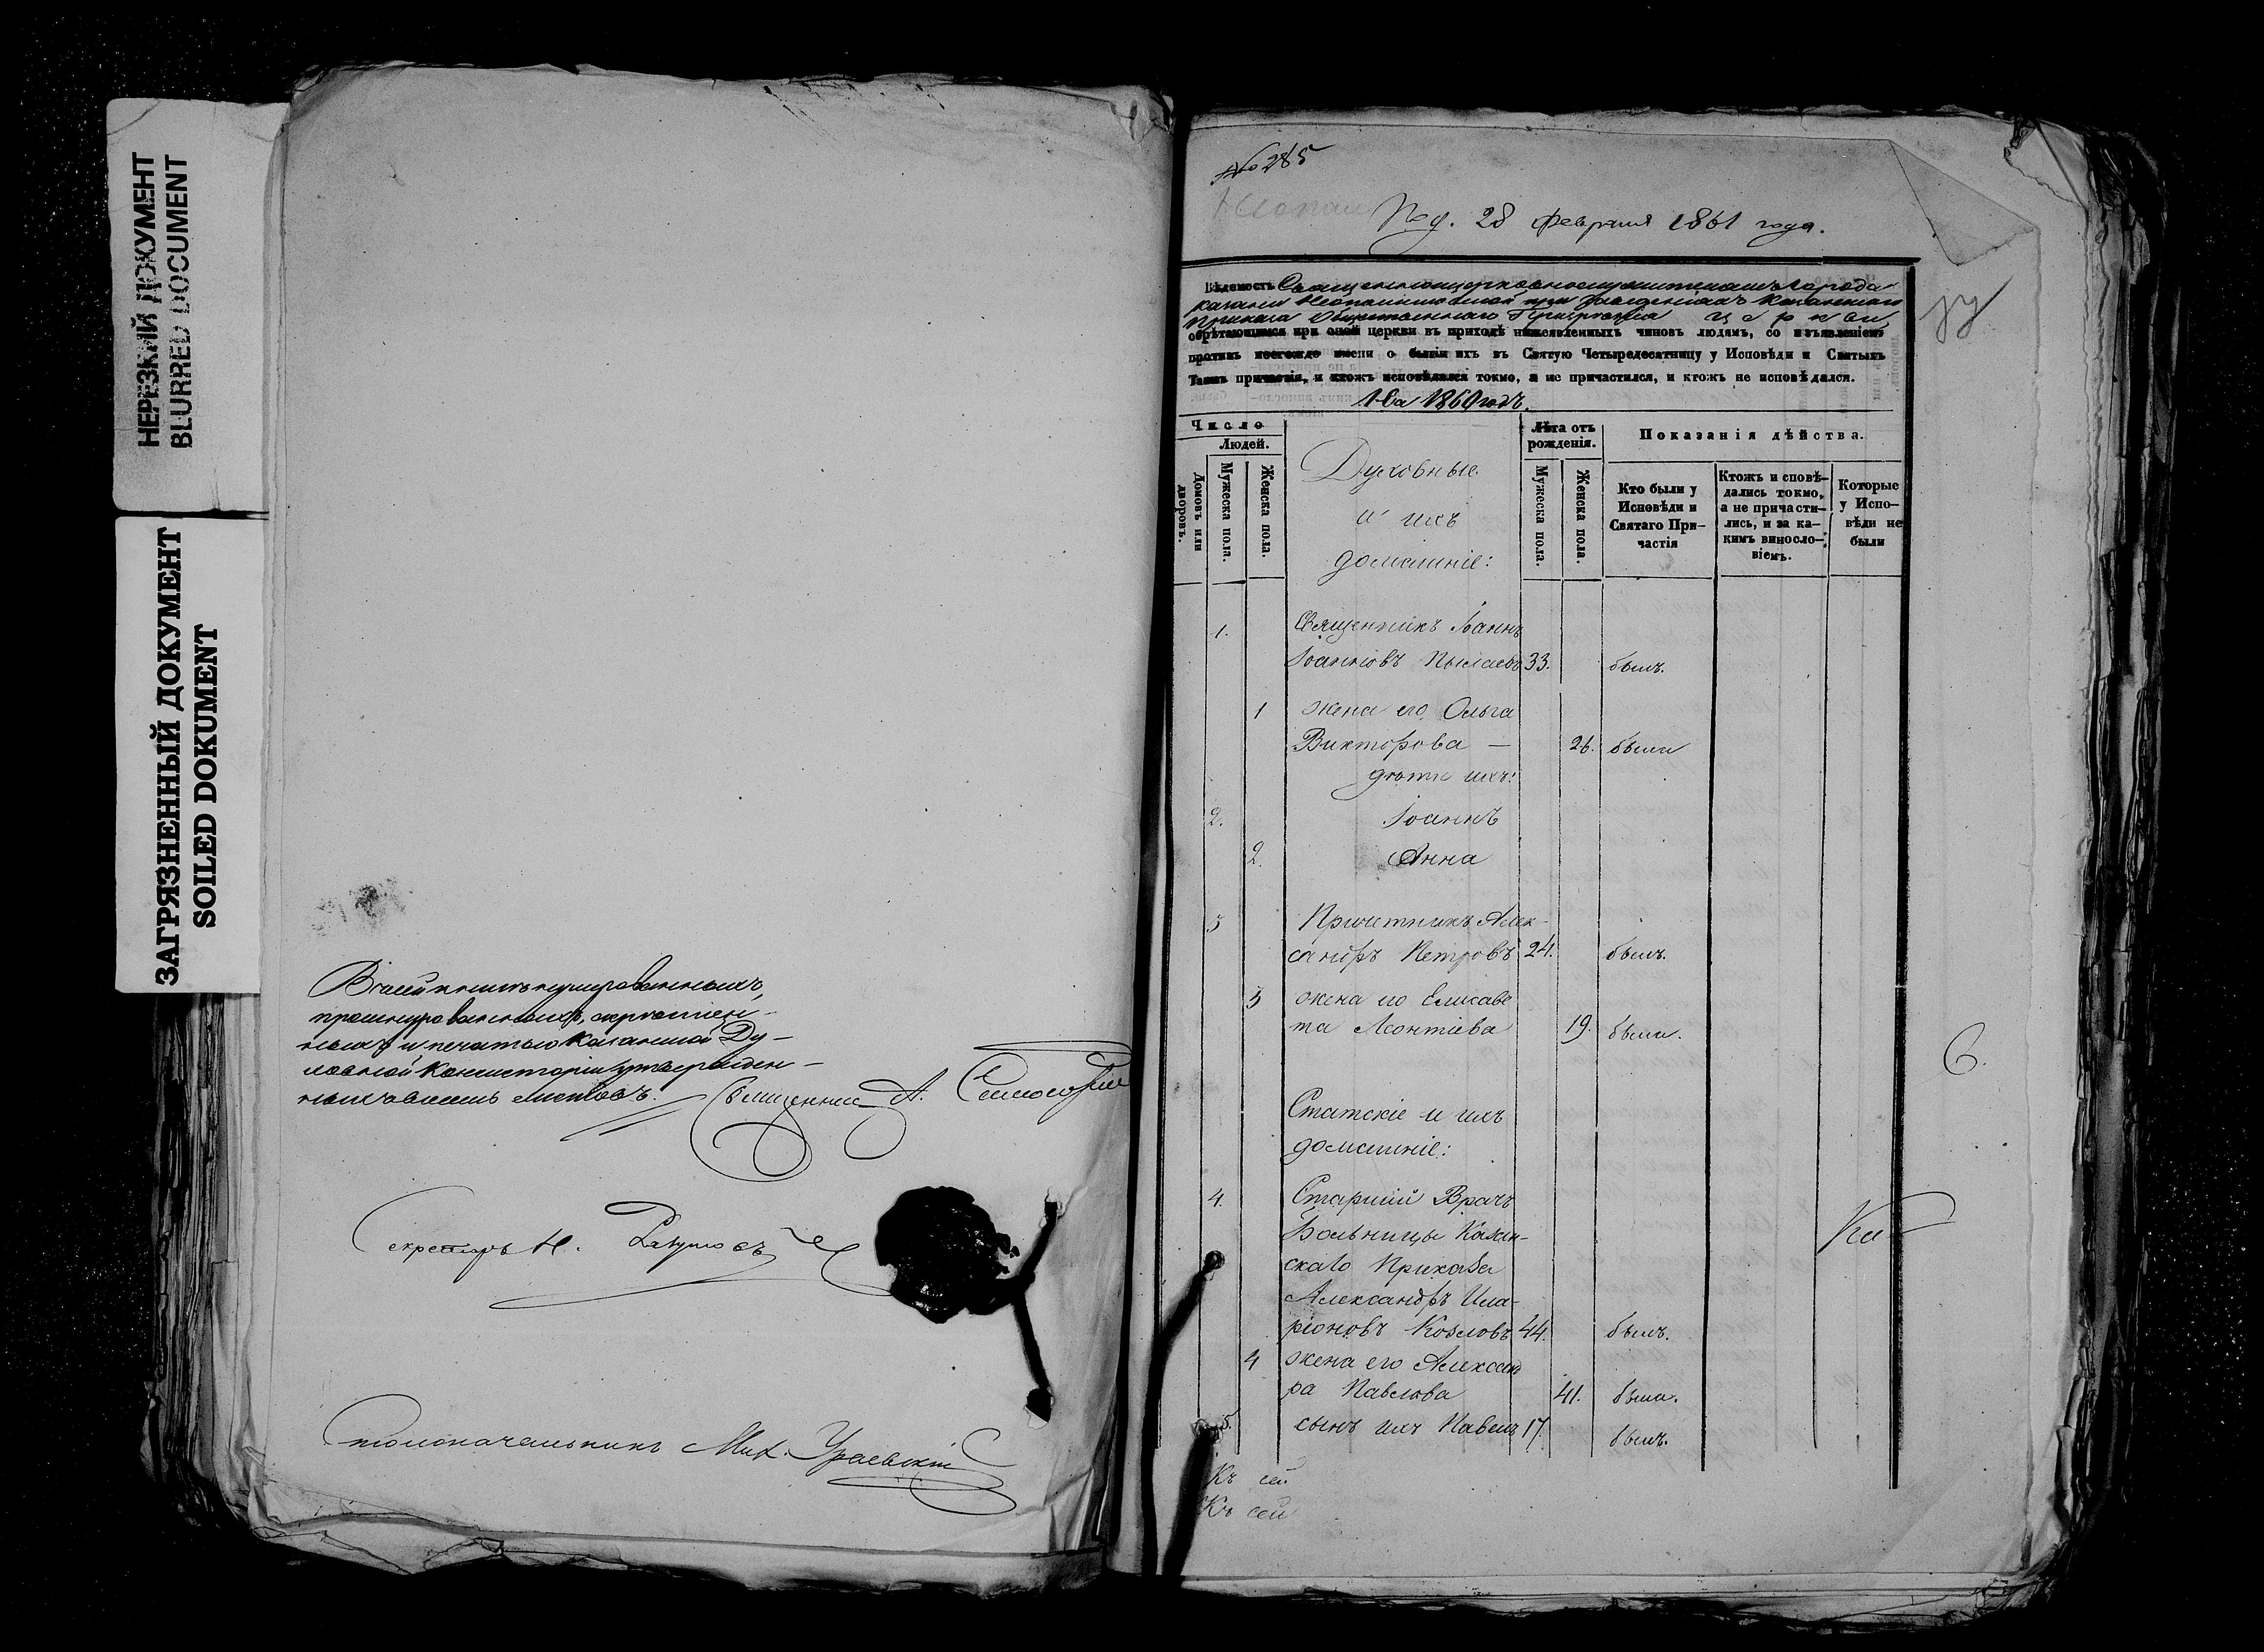 НЕРЕЗКИЙ ДОКУМЕНТ
BLURRED DOCUMENT
ЗАГРЯЗНЕННЫЙ ДОКУМЕНТ
SOILED DOKUMENT
В сей книгѣ нумерованныхъ,
прошнурованныхъ, скрѣплен-
ныхъ и печатью Казанской Ду-
ховной Консисторіи утвержден-
ныхъ листовъ.
Священникъ А.
Секретарь Н.
Столоначальникъ Мих.
№ 285
Под. 28 февраля 1861 года.
Вѣдомость Священноцерковнослужителямъ города
Казани при заведеніяхъ Казанскаго
Приказа Общественнаго Призрѣнія церкви,
обрѣтающимся при оной церкви въ приходѣ нижеявленныхъ чиновъ людямъ, со изъявленіемъ
противъ коегождо имени о бытіи ихъ въ Святую Четыредесятницу у Исповѣди и Святыхъ
Таинъ причастія, и ктожъ исповѣдался токмо, а не причастился, и ктожъ не исповѣдался.
На 1860 годъ.
Число
Людей.
Домовъ или дворовъ.
Мужеска пола.
Женска пола.
Духовные
и ихъ
домашніе:
Лѣта отъ рожденія.
Мужеска пола.
Женска пола.
Показанія дѣйства.
Кто были у Исповѣди и Святаго При-частія
Ктожъ исповѣ-дались токмо, а не причасти-лись, и за ка-кимъ винослo-віемъ.
Которые у Испо-вѣди не были
1. Священникъ Іоаннъ
Іоанновъ Пылаевъ 33. былъ.
1 жена его Ольга
Викторова — 26. была
дѣти ихъ:
2. Іоаннъ
2. Анна
3 Причетникъ Алек-
сандръ Петровъ 24. былъ.
3 жена его Елисаве
та Леонтіева 19. была.
Статскіе и ихъ
домашніе:
4. Старшій Врачъ
Больницы Казан-
скаго Приказа
Александръ Ила-
ріоновъ Козловъ 44. былъ.
4 жена его Александ
ра Павлова 41. была.
5. сынъ ихъ Павелъ 17. былъ.
Къ сей
Къ сей